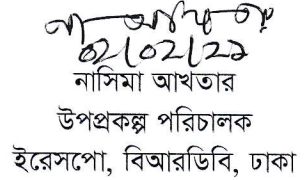 02/02/22
নাসিমা আখতার
উপপ্রকল্প পরিচালক
ইরেসপো, বিআরডিবি, ঢাকা